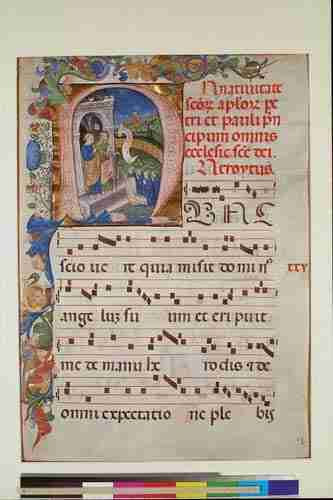 In nativitate
scõr aplõr pe
tri et pauli pñ
cipum omnis
ecclesie scẽ dei.
Introytus.
NUNC
scio ue re quia misit domi nus
XXV
ange lum su um et eri puit
me de manu he ro dis et de
omni expectatio ne ple bis